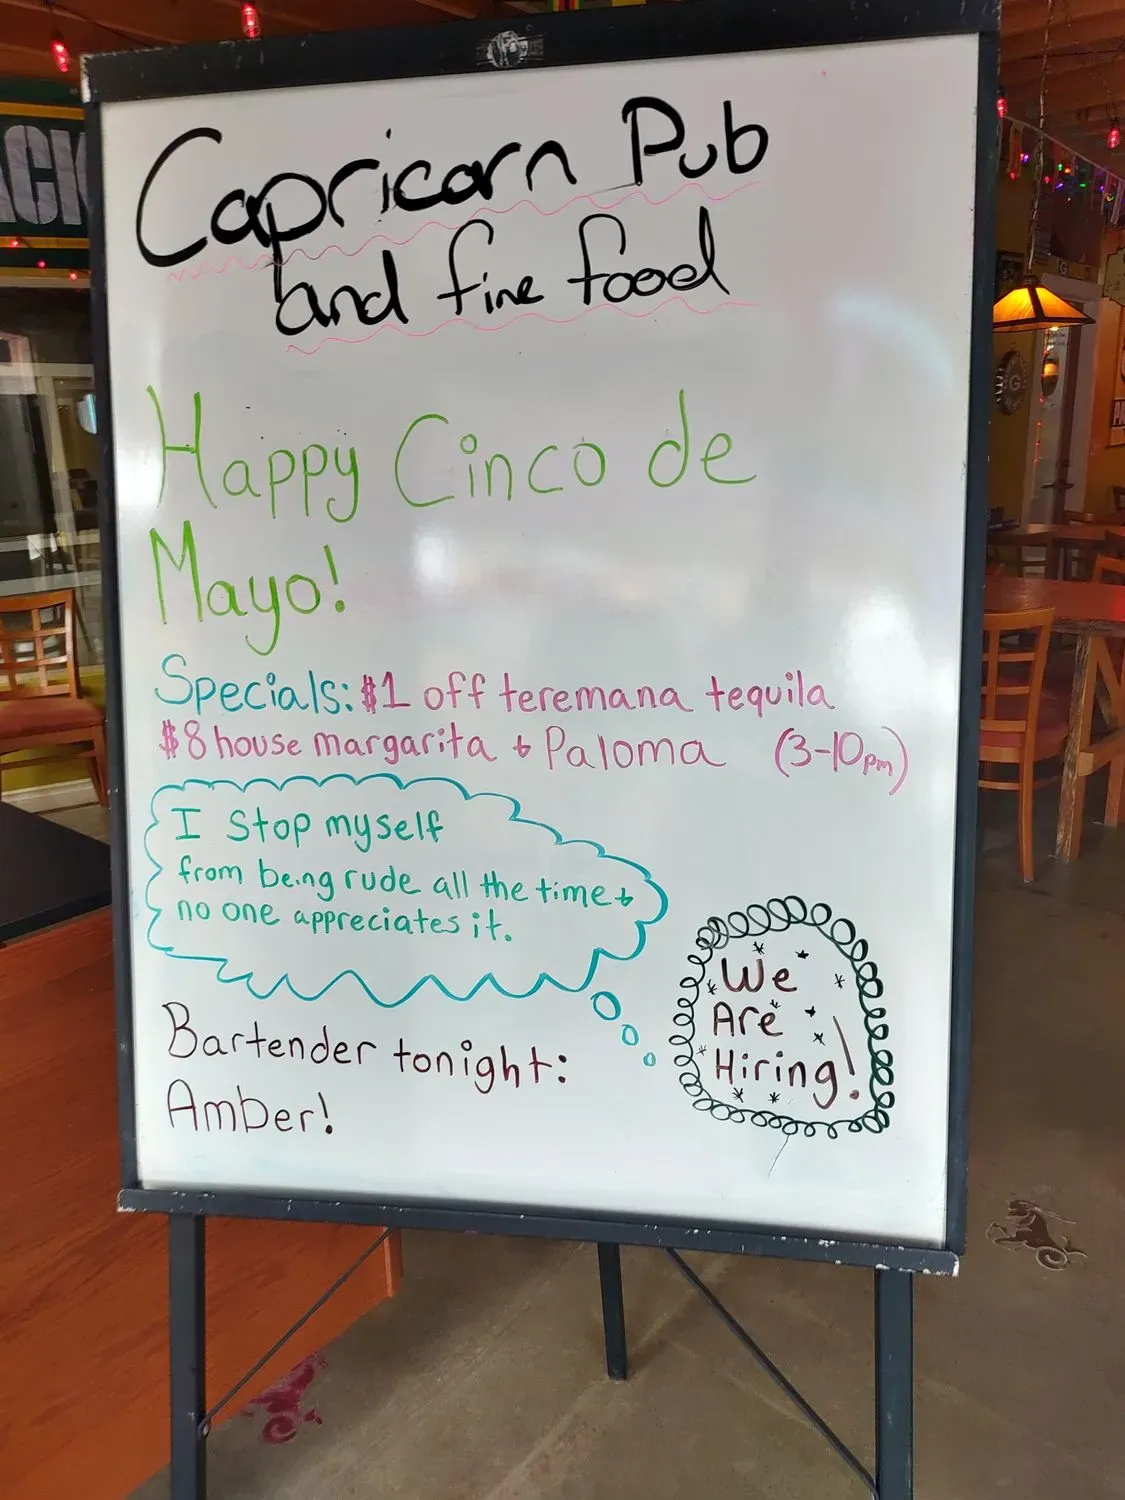 Capricorn Pub
and fine food
Happy Cinco de
Mayo!
Specials: $1 off teremana tequila
$8 house margarita + Paloma (3-10pm)
I stop myself
from being rude all the time +
no one appreciates it.
We
Are
Hiring!
Bartender tonight:
Amber!
ACK
G